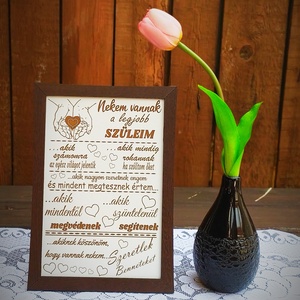 Nekem vannak
a legjobb
SZÜLEIM
...akik
számomra
az egész világot jelentik
...akik mindig
rohannak
ha szólítom őket
...akik nagyon szeretnek engem
és mindent megtesznek értem...
...akik
mindentől
megvédenek
...akik
szüntelenül
segítenek
...akiknek köszönöm,
hogy vannak nekem...
Szeretlek
Benneteket